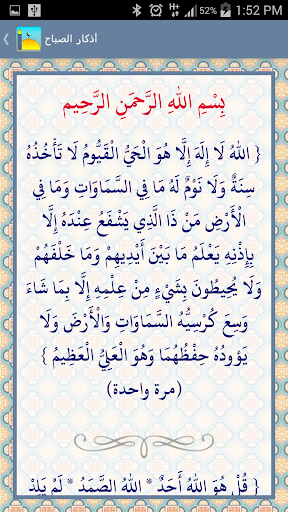 52% 1:52 PM
أذكار الصباح
بِسْمِ اللهِ الرَّحْمَنِ الرَّحِيمِ
{ اللهُ لَا إِلَهَ إِلَّا هُوَ الْحَيُّ الْقَيُّومُ لَا تَأْخُذُهُ
سِنَةٌ وَلَا نَوْمٌ لَهُ مَا فِي السَّمَاوَاتِ وَمَا فِي
الْأَرْضِ مَنْ ذَا الَّذِي يَشْفَعُ عِنْدَهُ إِلَّا
بِإِذْنِهِ يَعْلَمُ مَا بَيْنَ أَيْدِيهِمْ وَمَا خَلْفَهُمْ
وَلَا يُحِيطُونَ بِشَيْءٍ مِنْ عِلْمِهِ إِلَّا بِمَا شَاءَ
وَسِعَ كُرْسِيُّهُ السَّمَاوَاتِ وَالْأَرْضَ وَلَا
يَؤُودُهُ حِفْظُهُمَا وَهُوَ الْعَلِيُّ الْعَظِيمُ }
(مرة واحدة)
{ قُلْ هُوَ اللهُ أَحَدٌ * اللهُ الصَّمَدُ * لَمْ يَلِدْ